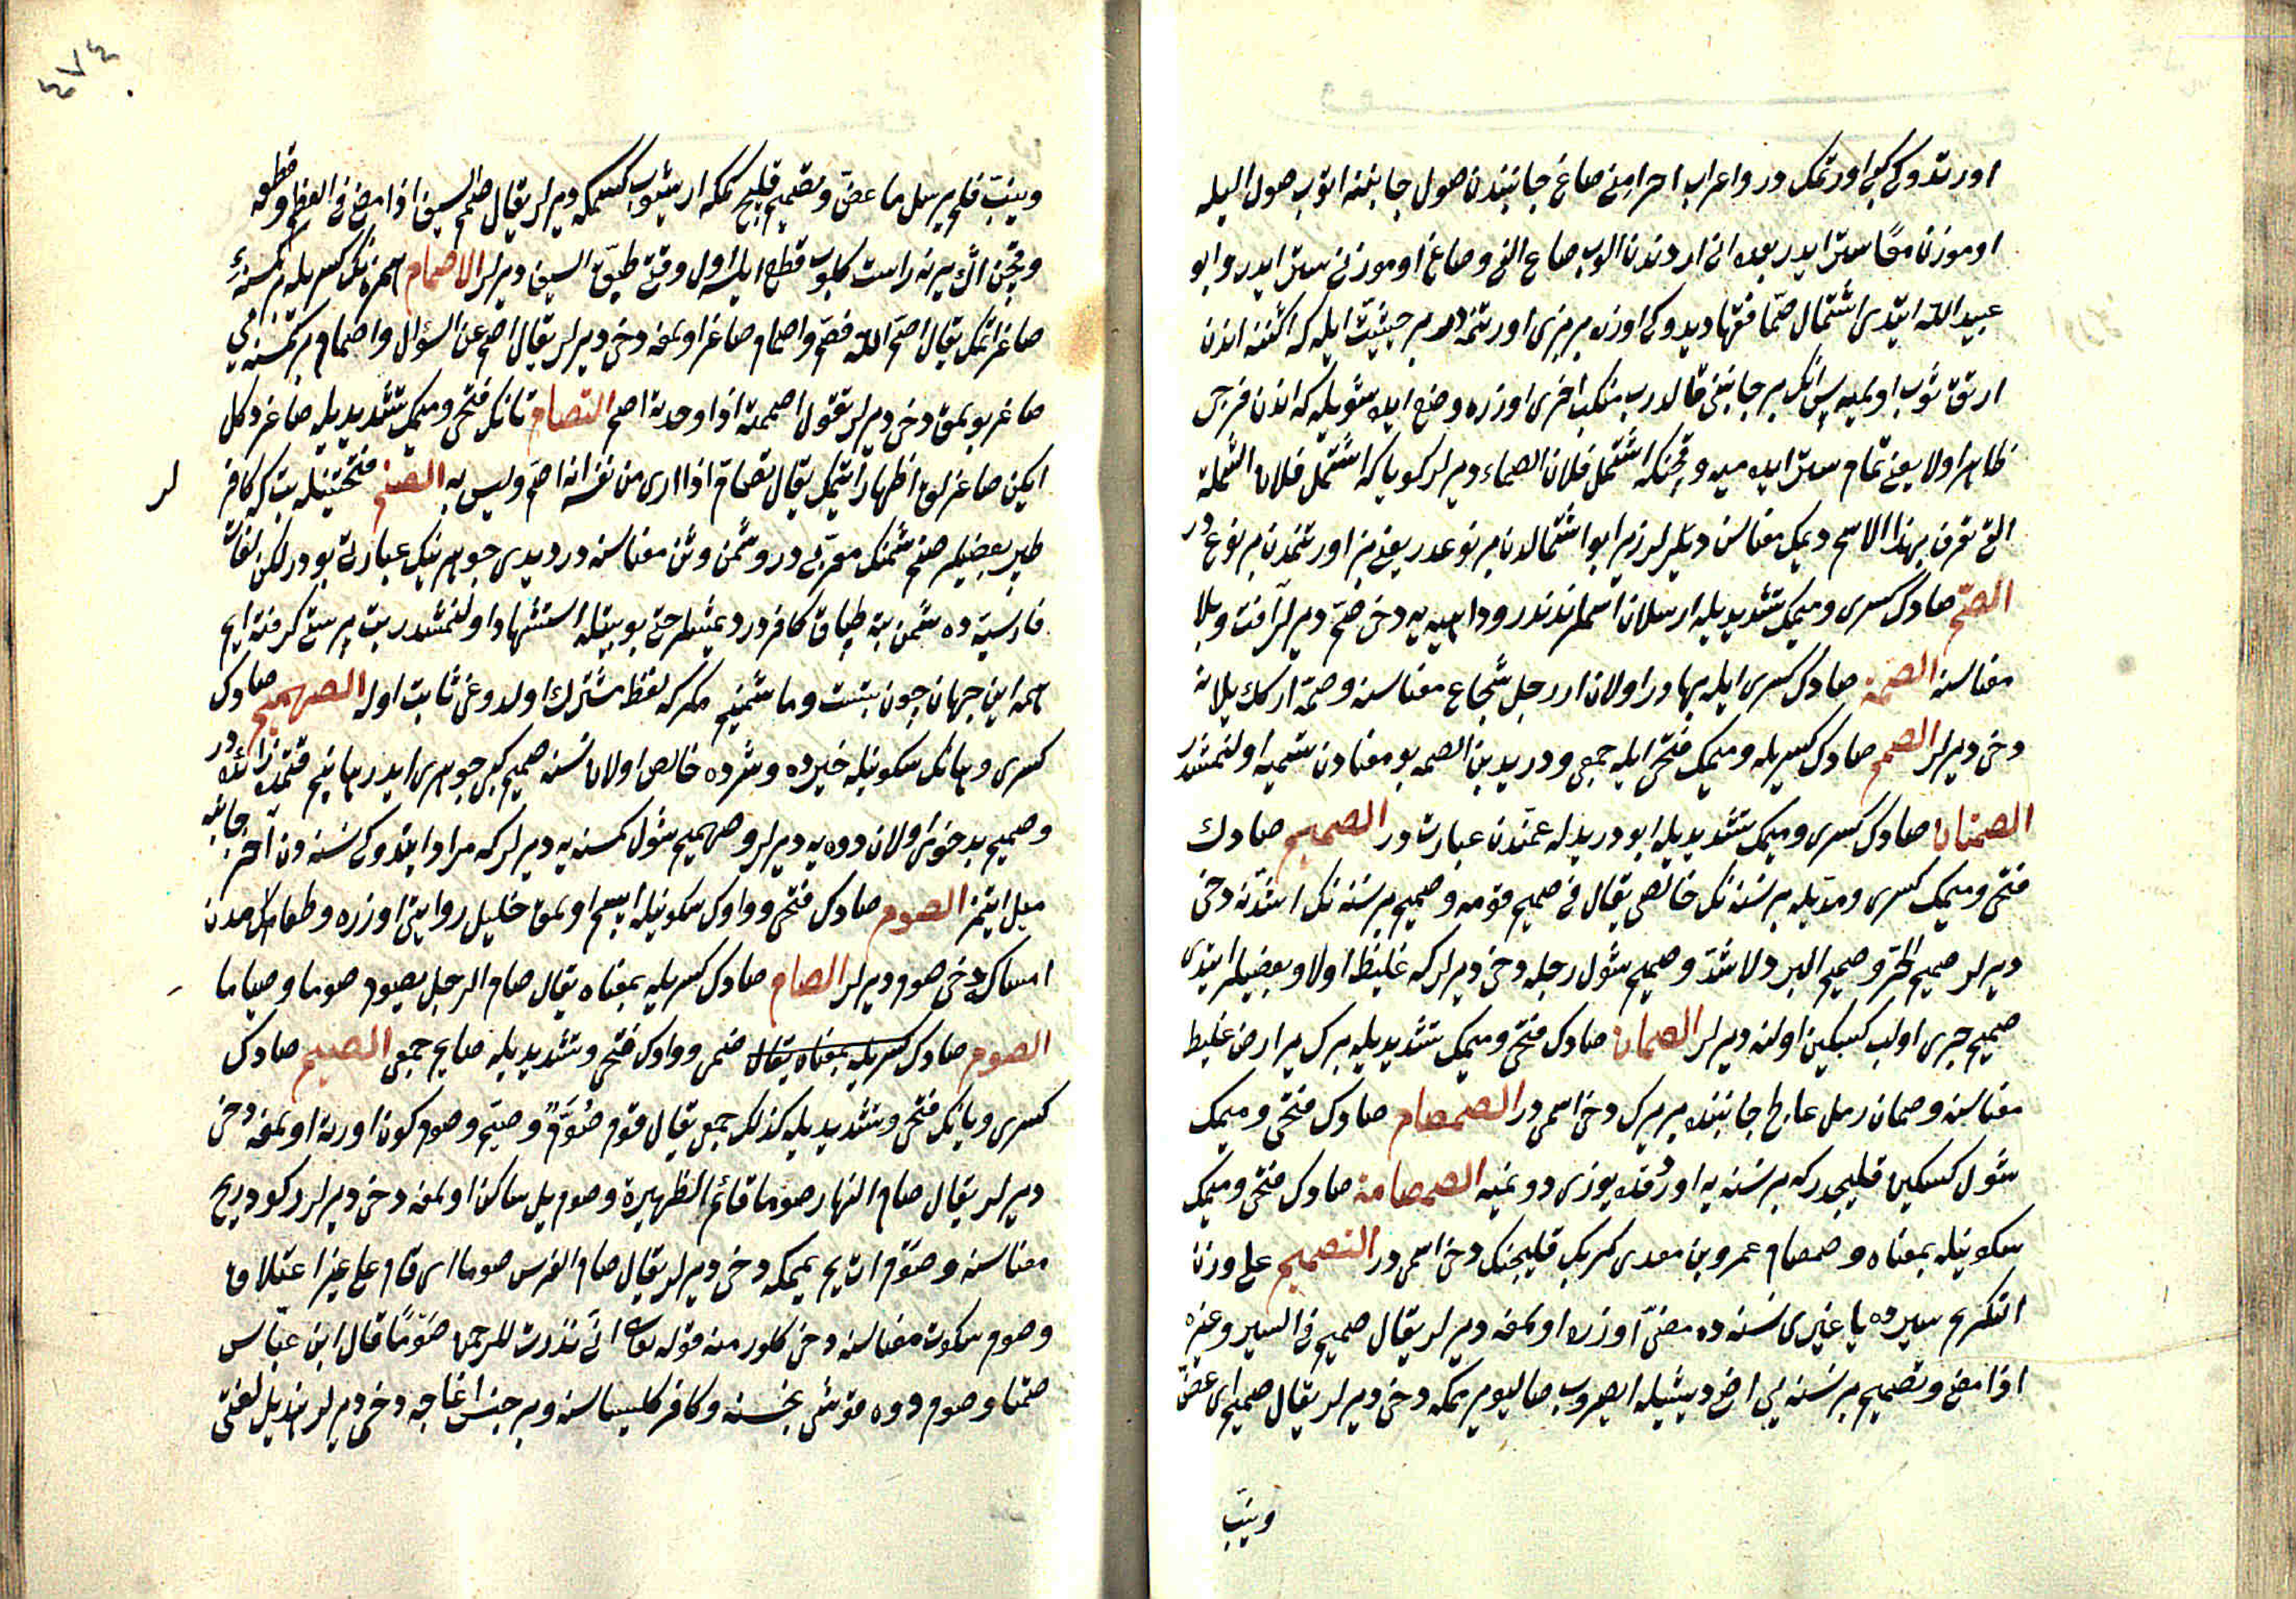 اورتدوكی كبی اورتمك در و اعراب احرامنی صاغ جانبندن صول جانبنه اتوب صول الیله
اوموزن معًا ستر ایدر بعده انی اردندن الوب صاغ الني و صاغ اوموزنی ستر ایدر و ابو
عبیدالله ایتدی اشتمال صمّا فقها دیدوكی اوزره بر بزی اورتنمه در بر حیثیت ایله كه اكننه اندن
ارتق ثوب اولمیه پس انك بر جانبنی قالدرب منكب اخری اوزره وضع ایده شویله كه اندن فرجی
ظاهر اولا یعنی تمام ستر ایده میه و قچنكه اشتمل فلان الصماء دیرلر كویا كه اشتمل فلان الشملة
التی تعرف بهذا الاسم دیمك معناسن دیلرلر زیرا بو اشتمالدن بر نوعدر یعنی بز اورتنمدن بر نوع در
الصّم صادك كسری و میمك تشدیدیله ارسلان اسملرندندر و داهیه یه دخی صمّ دیرلر آفت و بلا
معناسنه الصمة صادك كسری ایله بهادر اولان ار رجل شجاع معناسنه و صمّة اركك یلانه
دخی دیرلر الصمم صادك كسریله و میمك فتحی ایله جمعی و درید بن الصمه بو معنادن تسمیه اولنمشدر
الصمتان صادك كسری و میمك تشدیدیله ابو دریدله عمندن عبارت در الصمیم صادك
فتحی و میمك كسری و مدیله بر نسنه نك خالصی یقال فی صمیم قومه و صمیم بر نسنه نك اشدّنه دخی
دیرلر صمیم الحرّ و صمیم البرد لاشدّ و صمیم شول رجله دخی دیرلر كه غلیظ اولا و بعضیلر ایتدی
صمیم جری اولب كسكین اولنه دیرلر الصمان صادك فتحی و میمك تشدیدیله برك یر ارض غلیظ
معناسنه و صمان رمل عالج جانبنده بر یرك دخی اسمی در الصمصام صادك فتحی و میمك
شول كسكین قلیجدر كه بر نسنه یه اورُقده یوزی دونمیه الصمصامة صادك فتحی و میمك
سكونیله بمعناه و صمصام عمرو بن معدی كرب قلیجنك دخی اسمی در التصمیم علی وزن
التكریم سیرده یا غیری نسنه ده مضیّ اوزره اولمغه دیرلر یقال صمیم فی السیر و غیره
اذا مضی و تصمیم بر نسنه یی اضع دیشیله ایصروب صالیویرمكه دخی دیرلر یقال صمیم ای عضّ
ونیّب
٤٧٤
ونیّب فلم یرسل ما عضّ و تصمیم قلیج كمكه ارشوب كسمكه دیرلر یقال صمّم السیف اذا مضی فی العظم و قطعه
و قچن اكّ یرینه راست كلوب قطع ایلسه اول وقتی طبّق السیف دیرلر الاصمام همزه نك كسریله بر كمسنه یی
صاغر اتمك یقال اصمّ الله فصمّ و اصمام صاغر اولمغه دخی دیرلر یقال اصم عن السؤال و اصمام بر كمسنه یی
صاغر بولمق دخی دیرلر تقول اصممته اذا وجدته اصم التصامّ تانك فتحی و میمك تشدیدیله صاغر دكل
ایكن صاغرلق اظهار ایتمك یقال تصامّ اذا اری من نفسه انه اصمّ و لیس به الصنم فتحتینله بت كه كافر
لر
طپر بعضیلر صنم شمنك معربی در و شمن وثن معناسنه در دیدی جوهرینك عبارتی بودر لكن لغات
فارسیه ده شمن بته طپان كافردر دیمشلر حتی بو بیتله استشهاد اولنمشدر بت پرستی كرفته ایم
همه این جهان چون بتست و ما شمنیم مكر كه لفظ مشترك اولدوغی ثابت اوله الصهمیم صادك
كسری و هانك سكونیله خیرده و شرده خالص اولان نسنه صمیم كبی جوهری ایدر هانیم قتمده زائده در
و صهمیم بد خوی اولان دوه یه دیرلر و صهمیم شول كمسنه یه دیرلر كه مراد ایتدوكی نسنه دن آخر جانبه
میل ایتمز الصوم صادك فتحی و واوك سكونیله ایسم اولمق خلیل روایتی اوزره و طعامدن
امساك دخی صوم دیرلر الصیام صادك كسریله بمعناه یقال صام الرجل یصوم صوما و صیاما
الصوم صادك كسریله بمعناه یقال ضمی و واوك فتحی و تشدیدیله صایم جمعی الصیم صادك
كسری و یانك فتحی و تشدیدیله كذلك جمعی یقال قوم صُوَّمٌ و صیّم و صوم كون اورته اولمغه دخی
دیرلر یقال صام النهار صوما قائم الظهیرة و صوم یل ساكن اولمغه دخی دیرلر ركود ریح
معناسنه و صوم ات یم یممكه دخی دیرلر یقال صام الفرس صوما ای قام علی غیر اعتلاف
و صوم سكوت معناسنه دخی كلور منه قوله تعالی انّی نذرت للرحمن صَوْمًا قال ابن عبّاس
صمتا و صوم دوه قوشی نجسنه و كافر كلیساسنه و بر جنس اغاجه دخی دیرلر هذیل لغتی